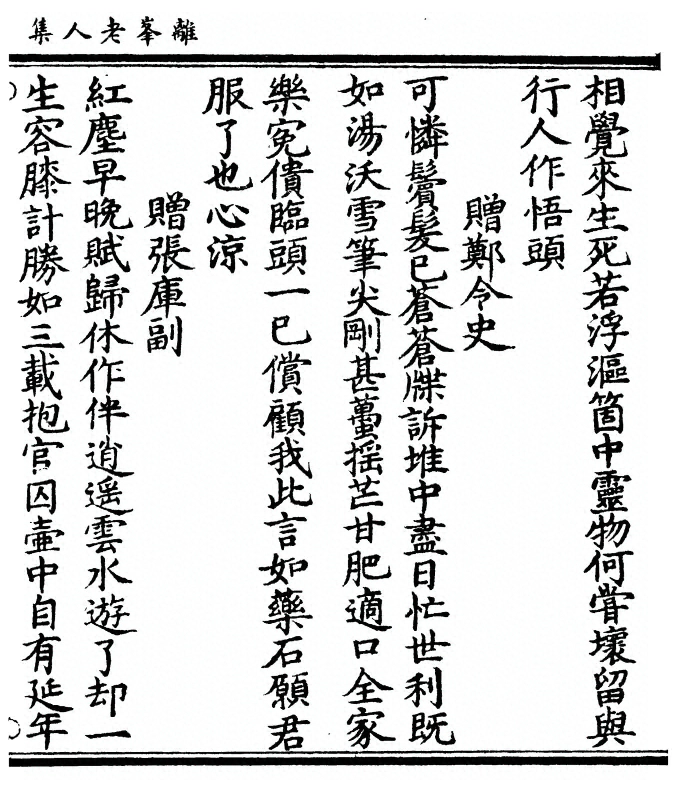 離峯老人集
相覺來生死若浮漚箇中靈物何甞壞留與
行人作悟頭
贈鄭令史
可憐鬢髮已蒼蒼牒訴堆中盡日忙世利既
如湯沃雪筆尖剛甚蠆揺芒甘肥適口全家
樂寃債臨頭一已償顧我此言如藥石願君
服了也心涼
贈張庫副
紅塵早晚賦歸休作伴逍遥雲水遊了却一
生容膝計勝如三載抱官囚壷中自有延年